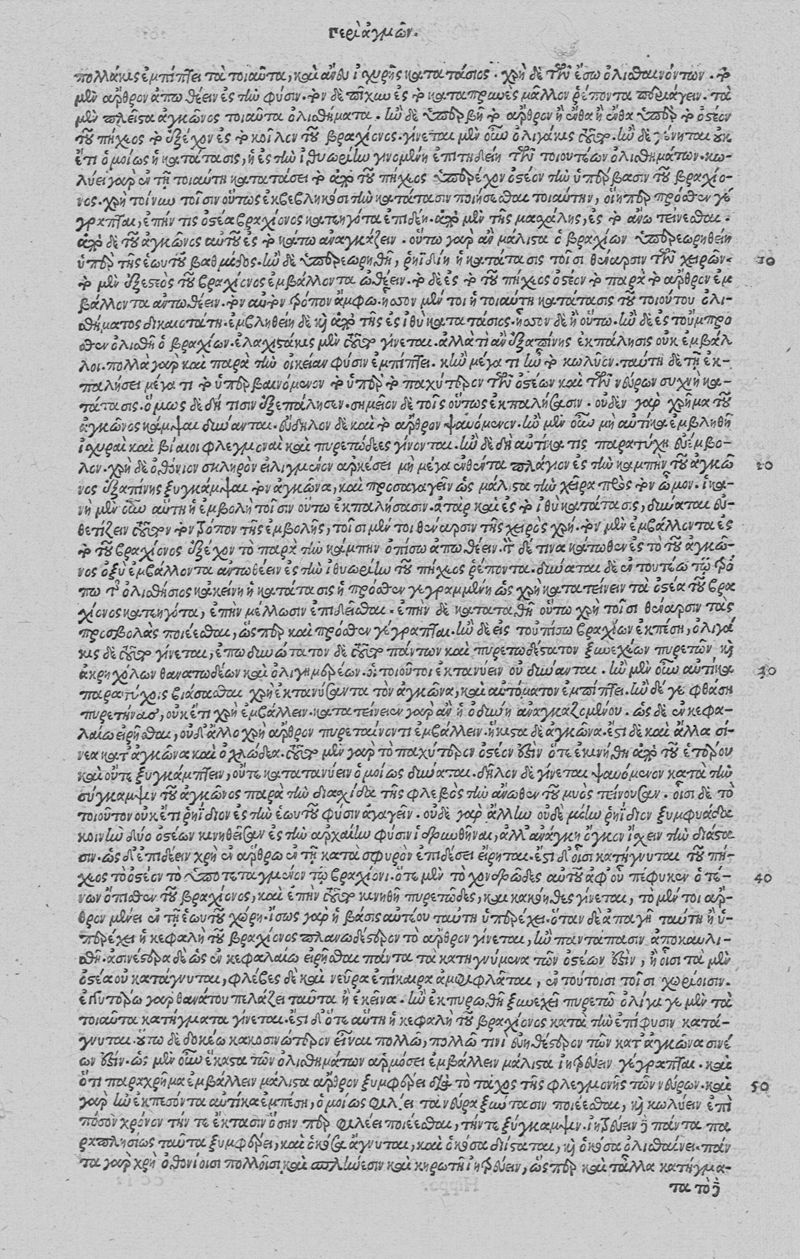 Περὶ ἀγμῶν.
πολλάκις ἐμπίπτει τὰ τοιαῦτα, καὶ ἄνευ ἰσχυρῆς κατατάσιος. χρὴ δὲ τῶν ἔσω ὀλισθανόντων. τὸ
μὲν ἄρθρον ἀπωθέειν ἐς τὴν φύσιν. τὸν δὲ πῆχυν ἐς τὸ καταπρανὲς μᾶλλον ῥέποντα περιάγειν. τὰ
μὲν πλεῖστα ἀγκῶνος τοιαῦτα ὀλισθήματα. ἢν δὲ ὑπερβῇ τὸ ἄρθρον ἢ ἔνθα ἢ ἔνθα ὑπὲρ τὸ ὀστέον
τοῦ πήχεος τὸ ἐξέχον ἐς τὸ κοῖλον τοῦ βραχίονος. γίνεται μὲν οὖν ὀλιγάκις τοῦτο. ἢν δὲ γένηται οὐκ
ἔτι ὁμοίως ἡ κατάτασις, ἡ ἐς τὴν ἰθυωρίην γινομένη ἐπιτηδείη τῶν τοιουτέων ὀλισθημάτων. κω-
λύει γὰρ ἐν τῇ τοιαύτῃ κατατάσει τὸ ἀπὸ τοῦ πήχεος ὑπερέχον ὀστέον τὴν ὑπέρβασιν τοῦ βραχίο-
νος. χρὴ τοίνυν τοῖσιν οὕτως ἐκβεβληκόσι τὴν κατάτασιν ποιήσεσθαι τοιαύτην, οἵηπερ πρόσθεν γέ
γραπται, ἐπήν τις ὀστέα βραχίονος κατηγότα ἐπιδέῃ. ἀπὸ μὲν τῆς μασχάλης, ἐς τὸ ἄνω τείνεσθαι.
ἀπὸ δὲ τοῦ ἀγκῶνος αὐτοῦ ἐς τὸ κάτω ἀναγκάζειν. οὕτω γὰρ ἂν μάλιστα ὁ βραχίων ὑπεραιωρηθείη
ὑπὲρ τῆς ἑωυτοῦ βαθμίδος. ἢν δὲ ὑπεραιωρηθῇ, ῥηϊδίη ἡ κατάτασις τοῖσι θέναρσιν τῶν χειρῶν. 10
τὸ μὲν ἐξεστὸς τοῦ βραχίονος ἐμβάλλοντα ὠθέειν. τὸ δὲ ἐς τὸ τοῦ πήχεος ὀστέον τὸ παρὰ τὸ ἄρθρον ἐμ
βάλλοντα ἀντωθέειν. τὸν αὐτὸν τρόπον ἄμφω. ἧσσον μέν τοι ἡ τοιαύτη κατάτασις τοῦ τοιούτου ὀλι-
σθήματος δικαιοτάτη. ἐμβληθείη δὲ καὶ ἀπὸ τῆς ἐς ἰθὺ κατατάσιος. ἧσσον δὲ ἢ οὕτω. ἢν δὲ ἐς τοὔμπρο
σθεν ὀλίσθῃ ὁ βραχίων. ἐλαχιστάκις μὲν τοῦτο γίνεται. ἀλλὰ τί ἂν ἐξαπίνης ἐκπάλησις οὐκ ἐμβάλ
λοι. πολλὰ γὰρ καὶ παρὰ τὴν οἰκείαν φύσιν ἐμπίπτει. κἢν μέγα τι ἢν τὸ κωλῦον. ταύτῃ δὲ τῇ ἐκ-
παλήσει μέγα τι τὸ ὑπερβαινόμενον τὸ ὑπὲρ τὸ παχύτερον τῶν ὀστέων καὶ τῶν νεύρων συχνὴ κα-
τάτασις. ὅμως δὲ δή τισιν ἐξεπάλησεν. σημεῖον δὲ τοῖς οὕτως ἐκπαλήσασιν. οὐδὲν γὰρ χρῆμα τοῦ
ἀγκῶνος κάμψαι δύνανται. εὔδηλον δὲ καὶ τὸ ἄρθρον ψαυόμενον. ἢν μὲν οὖν μὴ αὐτίκα ἐμβληθῇ
ἰσχυραὶ καὶ βίαιοι φλεγμοναὶ καὶ πυρετώδεες γίνονται. ἢν δὲ δὴ αὐτίκα τις παρατύχῃ εὐέμβο-
λον. χρὴ δὲ ὀθόνιον σκληρὸν εἱλιγμένον ἀρκέσει μὴ μέγα ἐνθέντα πλάγιον ἐς τὴν καμπὴν τοῦ ἀγκῶ 20
νος ἐξαπίνης ξυγκάμψαι τὸν ἀγκῶνα, καὶ προσαγαγεῖν ὡς μάλιστα τὴν χεῖρα πρὸς τὸν ὦμον. ἱκα-
νὴ μὲν οὖν αὕτη ἡ ἐμβολὴ τοῖσιν οὕτω ἐκπαλήσασιν. ἀτὰρ καὶ ἐς τὸ ἰθὺ κατάτασις, δύναται εὐ-
θετίζειν τοῦτον τὸν τρόπον τῆς ἐμβολῆς, τοῖσι μέν τοι θέναρσιν τῆς χειρὸς χρή. τὸν μὲν ἐμβάλλοντα ἐς
τὸ τοῦ βραχίονος ἐξέχον τὸ παρὰ τὴν κάμπην ὀπίσω ἀπωθέειν. τὸν δέ τινα κάτωθεν ἐς τὸ τοῦ ἀγκῶ-
νος ὀξὺ ἐμβάλλοντα ἀντωθέειν ἐς τὴν ἰθυωρίην τοῦ πήχεος ῥέποντα. δύναται δὲ ἐν τουτέῳ τῷ τρό
πῳ τῆς ὀλισθήσιος κἀκείνη ἡ κατάτασις ἡ πρόσθεν γεγραμμένη ὡς χρὴ κατατείνειν τὰ ὀστέα τοῦ βρα
χίονος κατηγότα, ἐπὴν μέλλωσιν ἐπιδέεσθαι. ἐπὴν δὲ καταταθῇ οὕτω χρὴ τοῖσι θέναρσιν τὰς
προσβολὰς ποιέεσθαι, ὥσπερ καὶ πρόσθεν γέγραπται. ἢν δὲ εἰς τοὐπίσω βραχίων ἐκπέσῃ, ὀλιγά
κις δὲ τοῦτο γίνεται, ἐπωδυνώτατον δὲ τοῦτο πάντων καὶ πυρετωδέστατον ξυνεχέων πυρετῶν καὶ
ἀκρηχόλων θανατωδέων καὶ ὀλιγημερέων. οἱ τοιοῦτοι ἐκτανύειν οὐ δύνανται. ἢν μὲν οὖν αὐτίκα 30
παρατύχῃς βιάσασθαι χρὴ ἐκτανύσαντα τὸν ἀγκῶνα, καὶ αὐτόματον ἐμπίπτει. ἢν δέ γε φθάσῃ
πυρετήνας, οὐκέτι χρὴ ἐμβάλλειν. κατατείνειεν γὰρ ἂν ἡ ὀδύνη ἀναγκαζομένου. ὡς δὲ ἐν κεφα-
λαίῳ εἰρῆσθαι, οὐδ' ἄλλο χρὴ ἄρθρον πυρεταίνοντι ἐμβάλλειν. ἥκιστα δὲ ἀγκῶνα. ἔστι δὲ καὶ ἄλλα σί-
νεα κατ' ἀγκῶνα καὶ ὀχλώδεα. τοῦτο μὲν γὰρ τὸ παχύτερον ὀστέον ἔστιν ὅτε ἐκινήθη ἀπὸ τοῦ ἑτέρου
καὶ οὔτε ξυγκάμπτειν, οὔτε κατατανύειν ὁμοίως δύναται. δῆλον δὲ γίνεται ψαυόμενον κατὰ τὴν
σύγκαμψιν τοῦ ἀγκῶνος παρὰ τὴν διασχίδα τῆς φλεβὸς τῆς ἄνωθεν τοῦ μυὸς τείνουσαν. οἷσι δὲ τὸ
τοιοῦτον οὐκέτι ῥηΐδιον ἐς τὴν ἑωυτοῦ φύσιν ἀγαγεῖν. οὐδὲ γὰρ ἄλλην οὐδὲ μίην ῥηΐδιον ξυμφυάδα
κοινὴν δύο ὀστέων κινηθεῖσαν ἐς τὴν ἀρχαίην φύσιν ἱδρυνθῆναι, ἀλλ' ἀνάγκη ὄγκον ἴσχειν τὴν διάστα
σιν. ὡς δ' ἐπιδέειν χρὴ ἐν ἄρθρῳ ἐν τῇ κατὰ σφυρὸν ἐπιδέσει εἴρηται. ἔστι δ' οἷσι κατήγνυται τοῦ πή-
χεος τὸ ὀστέον τὸ ὑποτεταγμένον τῷ βραχίονι. ὅτε μὲν τὸ χονδρῶδες αὐτοῦ ἀφ' οὗ πέφυκεν ὁ τέ- 40
νων ὄπισθεν τοῦ βραχίονος, καὶ ἐπὴν τοῦτο κινηθῇ πυρετῶδες, καὶ κακόηθες γίνεται, τὸ μέν τοι ἄρ-
θρον μένει ἐν τῇ ἑωυτοῦ χώρῃ. ἴσως γὰρ ἡ βάσις αὐτέου ταύτῃ ὑπερέχει. ὅταν δὲ ἀπαγῇ ταύτῃ ᾗ ὑ-
περέχει ἡ κεφαλὴ τοῦ βραχίονος πλανωδέστερον τὸ ἄρθρον γίνεται, ἢν παντάπασιν ἀποκαυλι-
θῇ. ἀσινέστερα δὲ ὡς ἐν κεφαλαίῳ εἰρῆσθαι πάντα τὰ κατηγνύμενα τῶν ὀστέων ἔστιν, ἢ οἷσι τὰ μὲν
ὀστέα οὐ κατάγνυται, φλέβες δὲ καὶ νεῦρα ἐπίκαιρα ἀμφιφλᾶται, ἐν τούτοισι τοῖσι χωρίοισιν.
ἐγγυτέρω γὰρ θανάτου πελάζει ταῦτα ἢ ἐκεῖνα. ἢν ἐκπυρωθῇ ξυνεχεῖ πυρετῷ ὀλίγα γε μὲν τὰ
τοιαῦτα κατήγματα γίνεται. ἔστι δ' ὅτε αὕτη ἡ κεφαλὴ τοῦ βραχίονος κατὰ τὴν ἐπίφυσιν κατά-
γνυται. τοῦτο δὲ δοκέω κακοσινώτερον εἶναι πολλῷ, πολλῷ τινὶ εὐηθέστερον τῶν κατ' ἀγκῶνα σινέ
ων ἔστιν. ὡς μὲν οὖν ἕκαστα τῶν ὀλισθημάτων ἁρμόσει ἐμβάλλειν μάλιστα ἰητρεύειν γέγραπται. καὶ
ὅτι παραχρῆμα ἐμβάλλειν μάλιστα ἄρθρον ξυμφέρει διὰ τὸ τάχος τῆς φλεγμονῆς τῶν νεύρων. καὶ 50
γὰρ ἢν ἐκπεσόντα αὐτίκα ἐμπέσῃ, ὁμοίως φιλέει τὰ νεῦρα ξύντασιν ποιέεσθαι, καὶ κωλύειν ἐπὶ
πόσον χρόνον τήν τε ἔκτασιν ὅσην περ φιλέει ποιέεσθαι, τήν τε ξύγκαμψιν. ἰητρεύειν δὲ πάντα πα
ραπλησίως ταῦτα ξυμφέρει, καὶ ὁκόσα ἄγνυται, καὶ ὁκόσα διίσταται, καὶ ὁκόσα ὀλισθαίνει. πάν
τα γὰρ χρὴ ὀθονίοισι πολλοῖσι καὶ σπλήνεσιν καὶ κηρωτῇ ἰητρεύειν, ὥσπερ καὶ τἄλλα κατήγμα-
τα τὸ δὲ